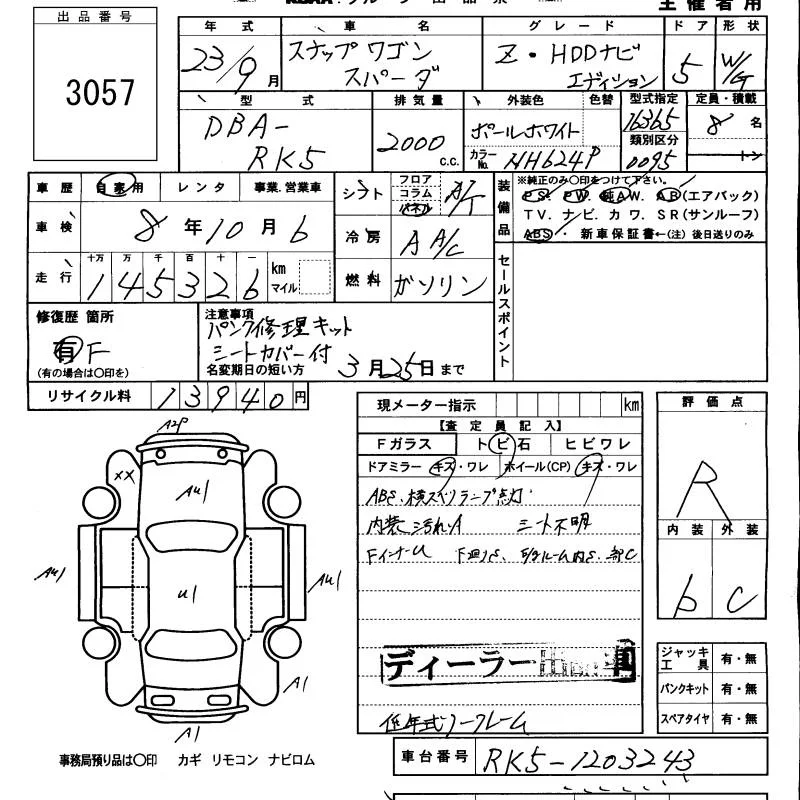 主催者用
出品番号
3057
年式 車名 グレード ドア 形状
23/9月 ステップワゴン スパーダ Z・HDDナビ エディション 5 W/G
型式 排気量 外装色 色替 型式指定 定員・積載
DBA-RK5 2000 c.c. パールホワイト 16365 8名
カラーNo. NH624P 類別区分 0095 トン
車歴 自家用 レンタ 事業.営業車
シフト フロア コラム パネル A/T
車検 8年10月6
冷房 A A/C
走行 十万 万 千 百 十 一 km マイル
145326
燃料 ガソリン
装備品 ※純正のみ〇印をつけて下さい。
PS. PW. 純AW. AB(エアバック)
TV. ナビ. カワ. SR(サンルーフ)
ABS・ 新車保証書←(注) 後日送りのみ
セールスポイント
修復歴 箇所
有 F
(有の場合は〇印を)
注意事項
パンク修理キット
シートカバー付
名変期日の短い方 3月25日まで
リサイクル料 13940円
現メーター指示 km
【査定員記入】
Fガラス トビ石 ヒビワレ
ドアミラー キズ・ワレ ホイール(CP) キズ・ワレ
ABS、横スベリランプ点灯
内装汚れA シート不明
FインナーU 下廻りS、
評価点
R
内装 外装
b C
A2P
XX
AU1
U1
AU1
AU1
A1
A1
ディーラー
低年式ノークレーム
ジャッキ工具 有・無
パンクキット 有・無
スペアタイヤ 有・無
事務局預り品は〇印 カギ リモコン ナビロム
車台番号 RK5-1203243